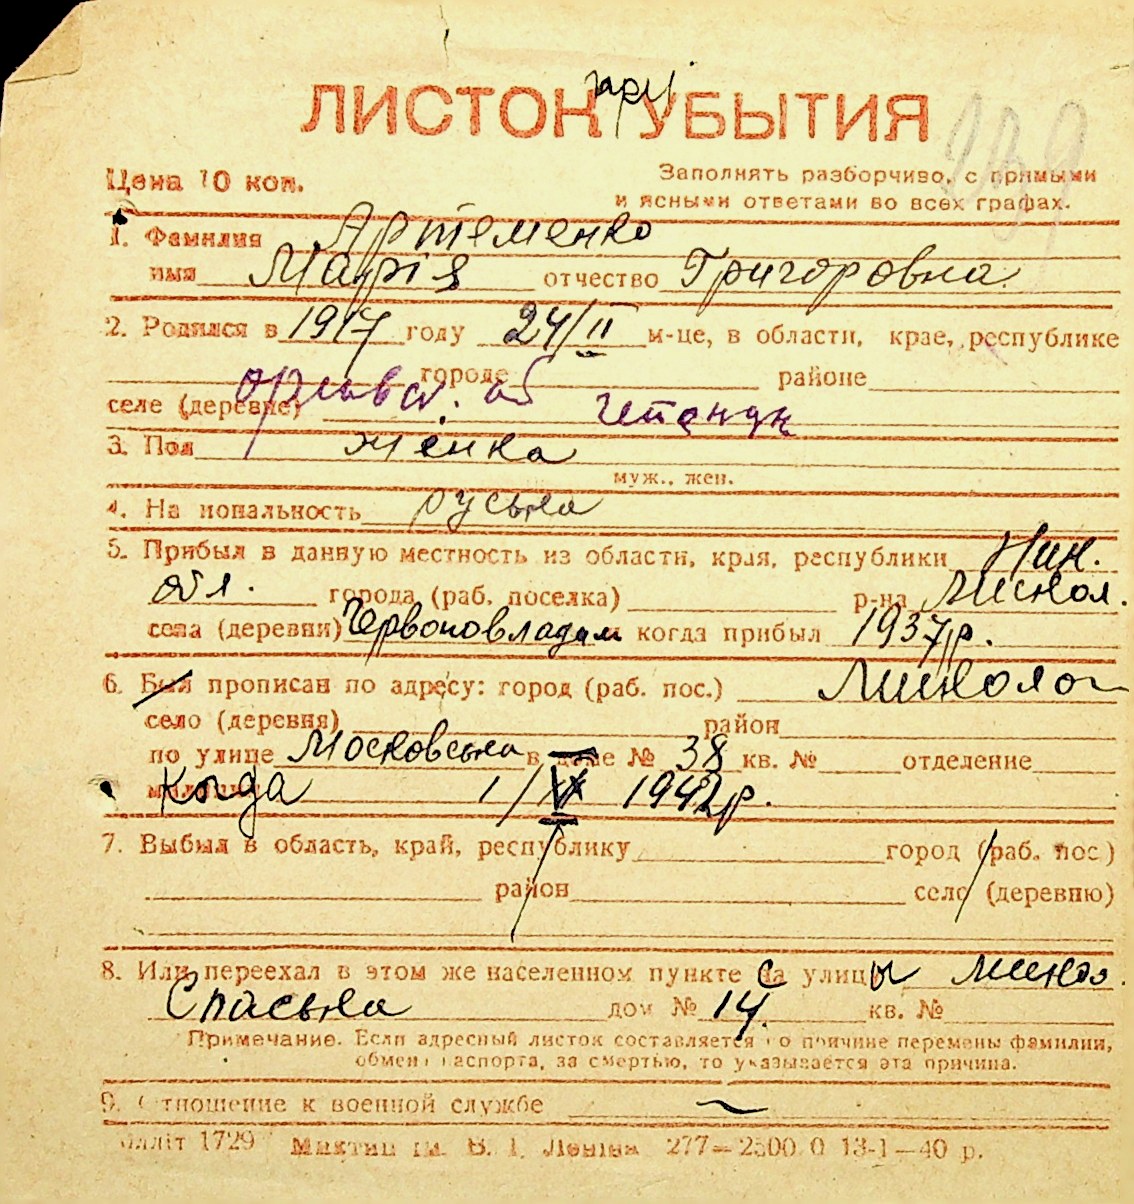 ЛИСТОК УБЫТИЯ
Цена 10 коп.
Заполнять разборчиво, с прямыми
и ясными ответами во всех графах.
1. Фамилия Артеменко
имя Марія отчество Григоровна
2. Родился в 1917 году 24/II м-це, в области, крае, республике
городе об районе
селе (деревне)
3. Пол жёнка
муж., жен.
4. Национальность русьна
5. Прибыл в данную местность из области, края, республики Ник.
обл. города (раб. поселка) р-на Микол.
села (деревни) когда прибыл 1937 р.
6. Был прописан по адресу: город (раб. пос.)
село (деревня) район
по улице Московська в доме № 38 кв. № отделение
когда 1/ 1942 р.
7. Выбыл в область, край, республику город (раб. пос.)
район село (деревню)
8. Или переехал в этом же населенном пункте с улицы
Спаська дом № 14 кв. №
Примечание. Если адресный листок составляется по причине перемены фамилии,
обмена паспорта, за смертью, то указывается эта причина.
9. Отношение к военной службе ~
1729 В. І. Леніна 277—2500.0 13-1—40 р.